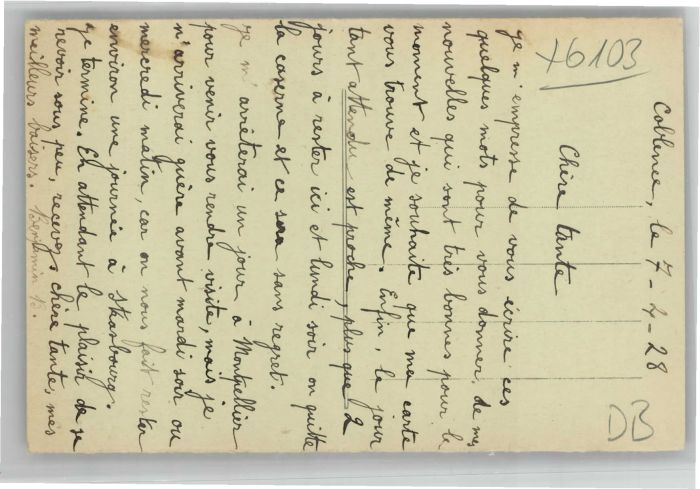 Coblence, le 7-4-28
Chère tante
Je m'empresse de vous écrire ces
quelques mots pour vous donner, de mes
nouvelles qui sont très bonnes pour le
moment et je souhaite que ma carte
vous trouve de même. Enfin, le jour
tant attendu est proche, plus que 2
jours à rester ici et lundi soir on quitte
la caserne et ce sera sans regret.
Je m'arrêterai un jour à Montpellier
pour venir vous rendre visite, mais je
n'arriverai guère avant mardi soir ou
mercredi matin, car on nous fait rester
environ une journée à Strasbourg.
Je termine. En attendant le plaisir de se
revoir sous peu, recevez chère tante, mes
meilleurs baisers. Benjamin B.
+6103
DB